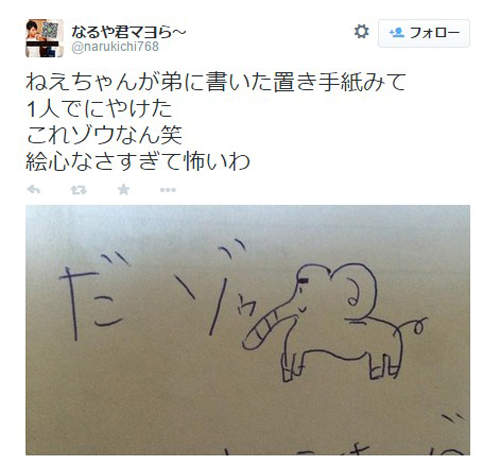 なるや君マヨら〜
@narukichi768
フォロー
ねえちゃんが弟に書いた置き手紙みて
1人でにやけた
これゾウなん笑
絵心なさすぎて怖いわ
だ ゾゥ